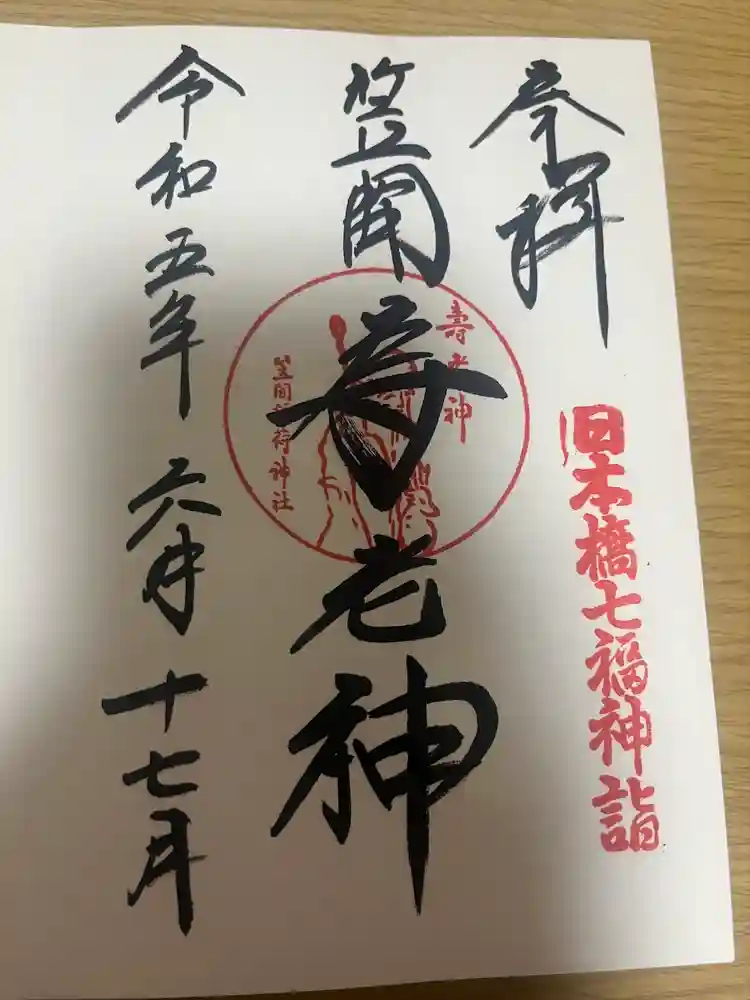 奉拝
日本橋七福神詣
笠間
寿老神
壽老神
笠間稲荷神社
令和五年 六月 十七月